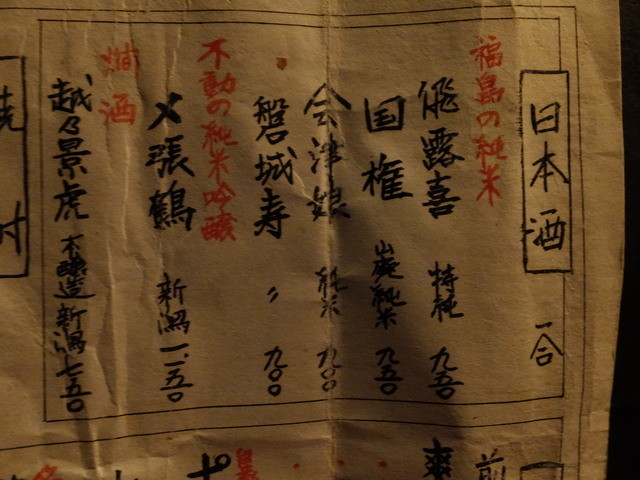 日本酒 一合
福島の純米
飛露喜 特純 九五〇
国権 山廃純米 九五〇
会津娘 純米 九〇〇
磐城寿 〃 九〇〇
不動の純米吟醸
〆張鶴 新潟 一、一五〇
燗酒
越乃景虎 本醸造 新潟 七五〇
焼
前
爽
ポ